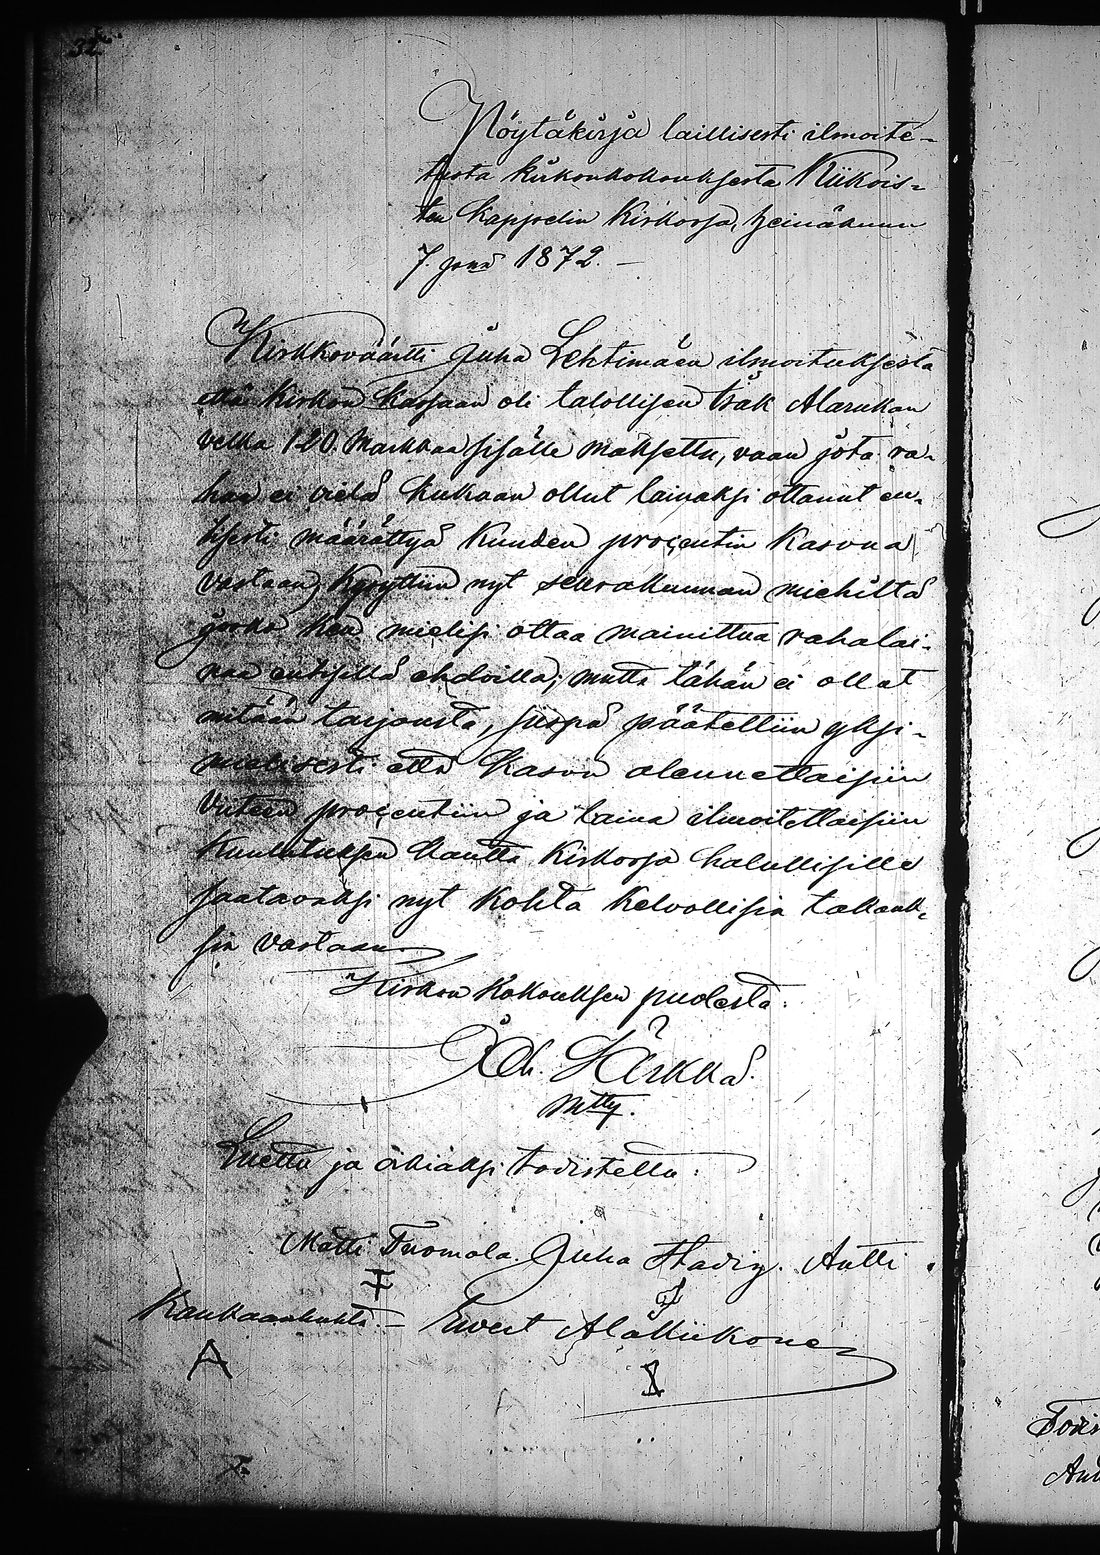 32
Pöytäkirja laillisesti ilmoite-
tusta kirkonkokouksesta Kiikois-
ten kappelin kirkossa, heinäkuun
7. pnä 1872. —
Kirkkoväärtti Juha Lehtimäen ilmoituksesta
että kirkon kassaan oli talollisen Isak Alarukan
velka 120 Markkaa sisälle maksettu, vaan jota ra-
haa ei vielä kukaan ollut lainaksi ottanut en-
tisesti määrättyä kuuden prosentin kasvua
vastaan, kysyttiin nyt seurakunnan miehiltä
josko ken mielisi ottaa mainittua rahalai-
naa entisillä ehdoilla; mutta tähän ei ollut
mitään tarjousta, jospa päätettiin yksi-
mielisesti että kasvu alennettaisiin
viiteen prosentiin ja laina ilmoitettaisiin
kuulutuksen kautta kirkossa halullisille
saatavaksi nyt kohta kelvollisia takauk-
sia vastaan.
Kirkon kokouksen puolesta:
Joh. Härkkä.
Luettu ja oikiaksi todistettu:
Matti Tuomola. Juha Stadig. Antti
Kaukaanhuhta — Evert AlaKiikone
A